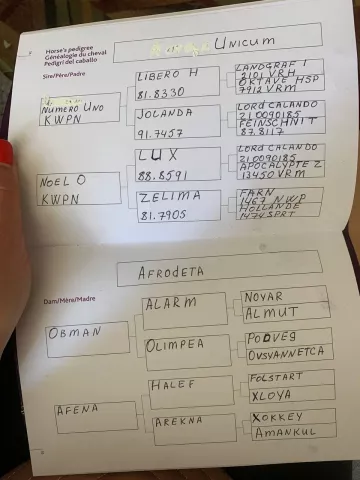 Horse's pedigree
Généalogie du cheval
Pedigrí del caballo
UNICUM
Sire/Père/Padre
NUMERO UNO
KWPN
LIBERO H
81.8330
LANDGRAF I
2101 VRH
OKTAVE HSP
7912 VRM
JOLANDA
91.7457
LORD CALANDO
210090185
FEINSCHNITT
87.8117
NOEL O
KWPN
LUX
88.8591
LORD CALANDO
210090185
APOCALYPTE Z
13450 VRM
ZELIMA
81.7905
FARN
1467 NWP
HOLLANDE
1474 SPRT
AFRODETA
Dam/Mère/Madre
OBMAN
ALARM
NOVAR
ALMUT
OLIMPEA
PODVEG
OVSYANNETCA
AFENA
HALEF
FOLSTART
XLOYA
AREKNA
XOKKEY
AMANKUL